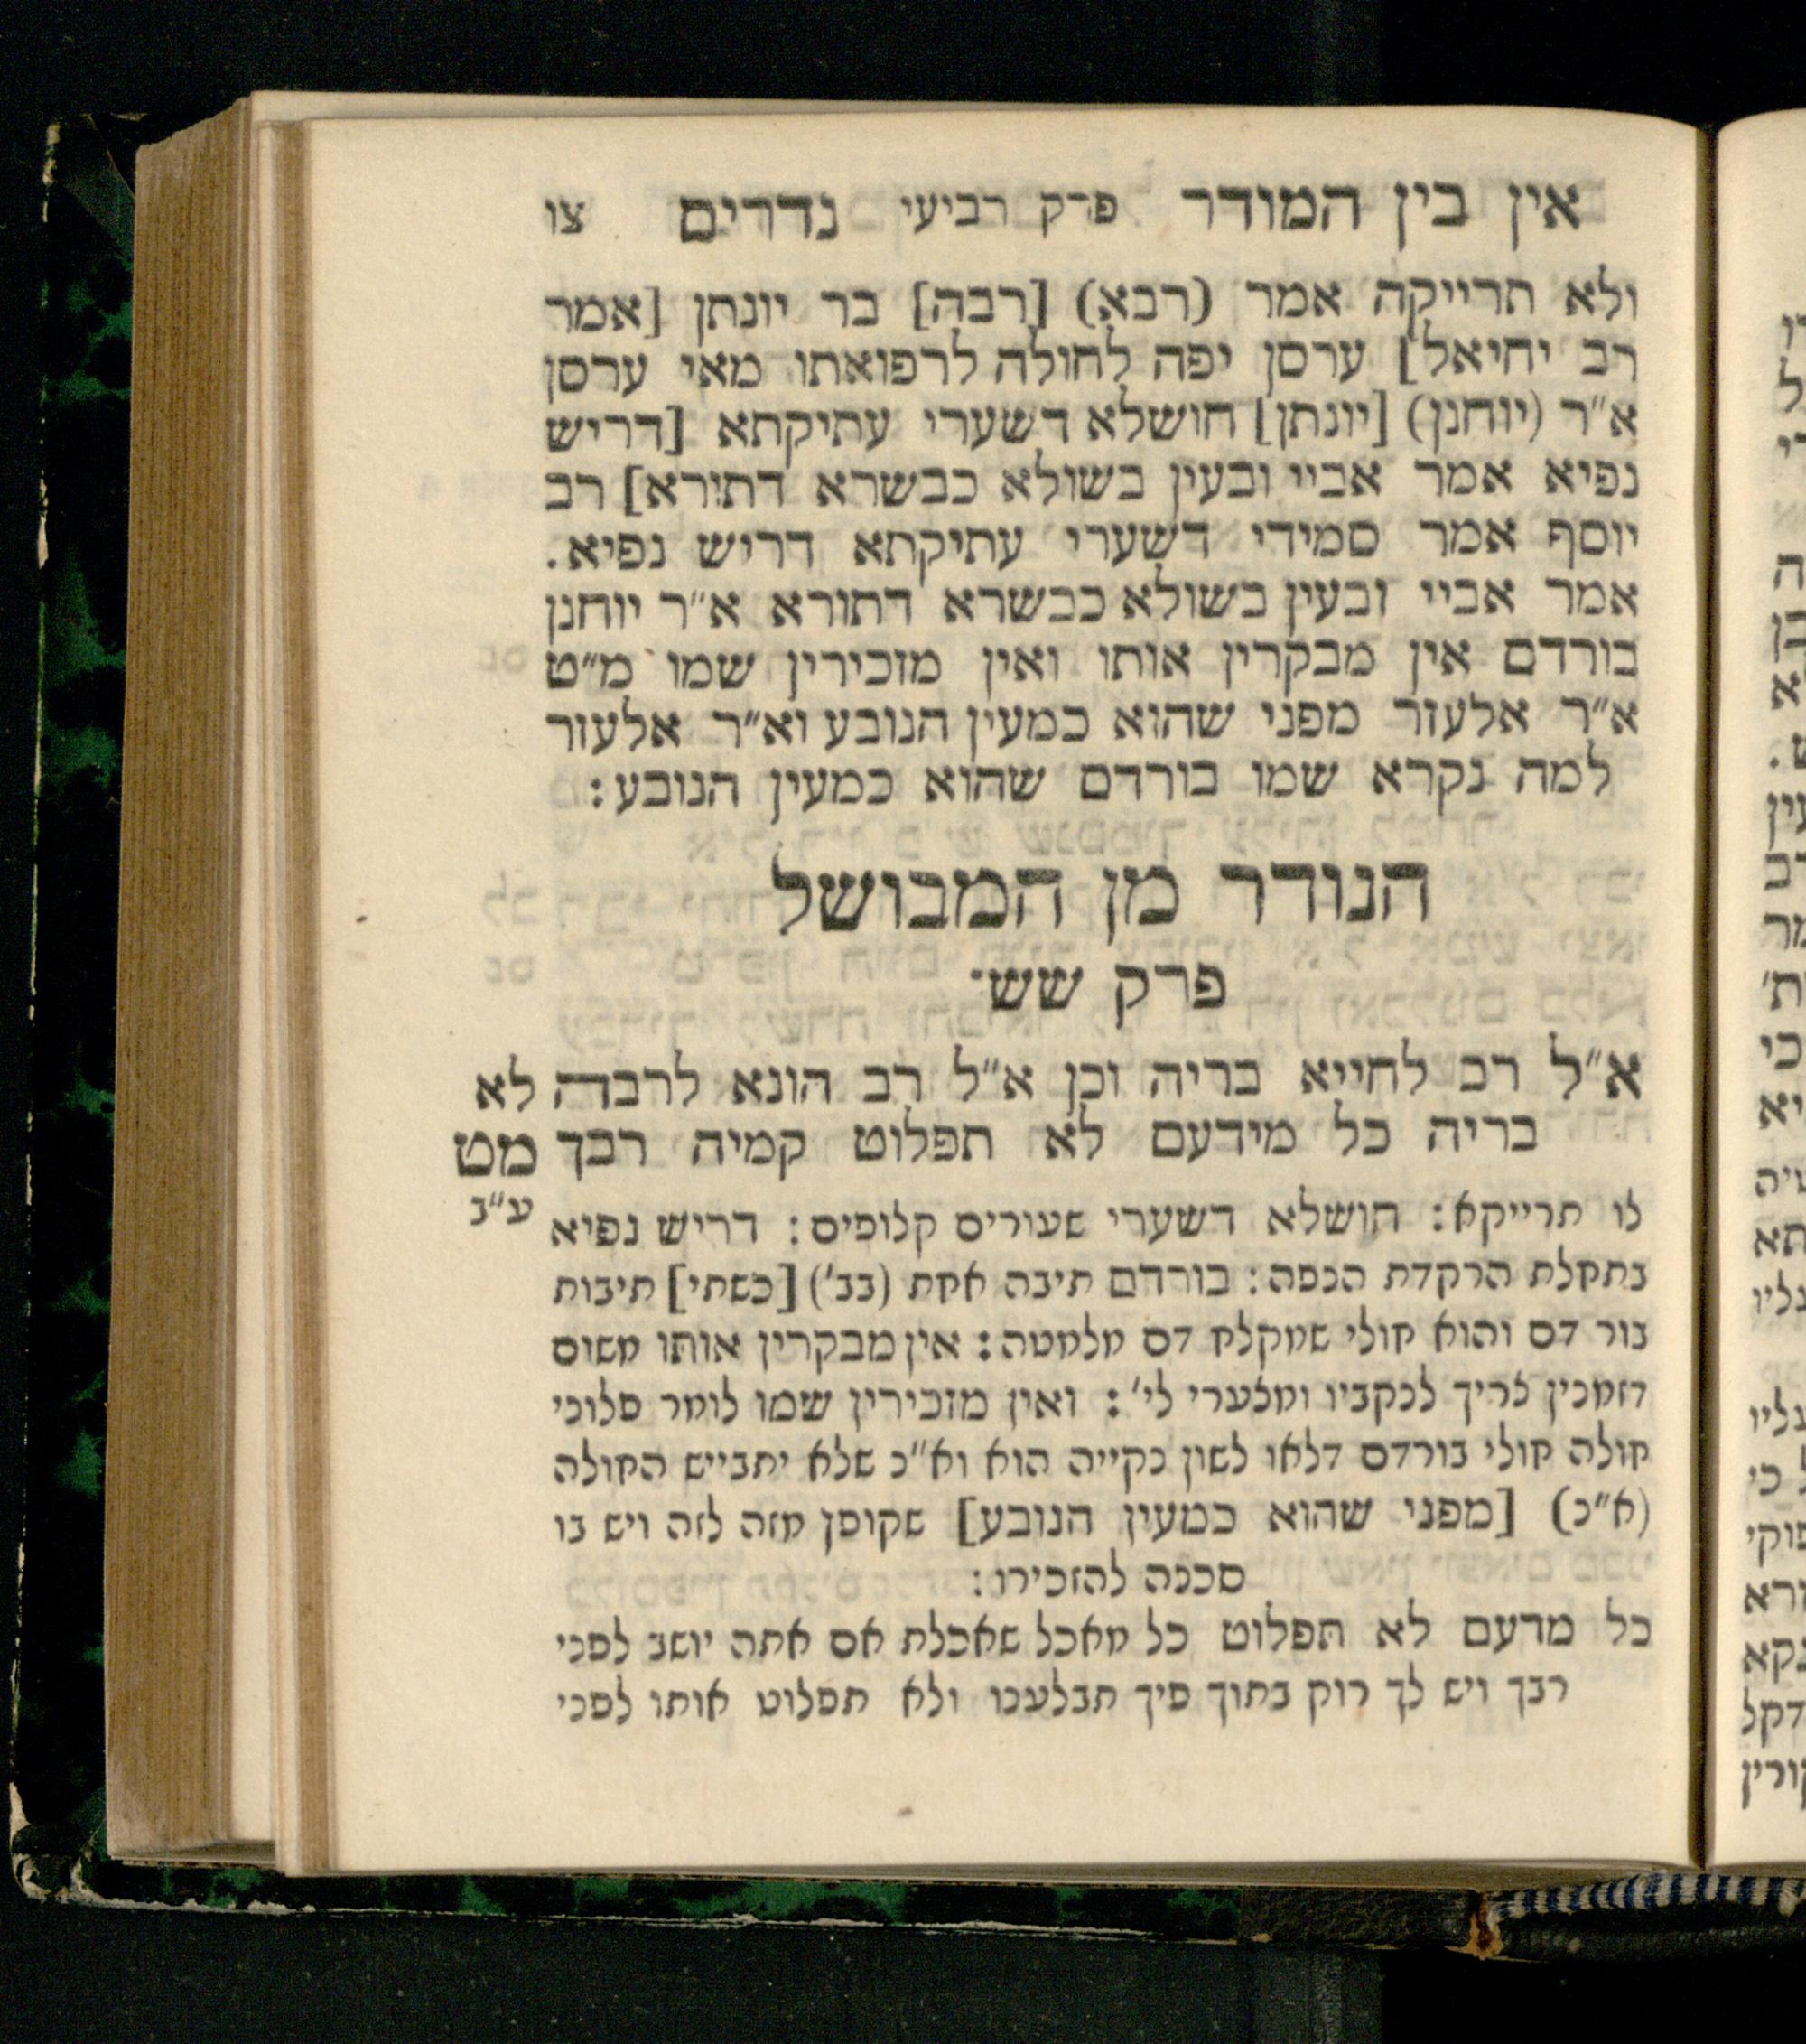 אין בין המודר פרק רביעי נדרים צו
ולא תרייקה אמר (רבא) [רבה] בר יונתן [אמר
רב יחיאל] ערסן יפה לחולה לרפואתו מאי ערסן
א״ר (יוחנן) [יונתן] חושלא דשערי עתיקתא [דריש
נפיא אמר אביי ובעין בשולא כבשרא דתורא] רב
יוסף אמר סמידי דשערי עתיקתא דריש נפיא.
אמר אביי ובעין בשולא כבשרא דתורא א״ר יוחנן
בורדם אין מבקרין אותו ואין מזכירין שמו מ״ט
א״ר אלעזר מפני שהוא כמעין הנובע וא״ר אלעזר
למה נקרא שמו בורדם שהוא כמעין הנובע:
הנודר מן המבושל
פרק ששי
א״ל רב לחייא בריה וכן א״ל רב הונא לרבה לא
בריה כל מידעם לא תפלוט קמיה רבך מט
ע״ב
לו תרייקא: חושלא דשערי שעורים קלופים: דריש נפיא
בתחלת הרקדת הנפה: בורדם תיבה אחת (בב׳) [כשתי] תיבות
בור דם והוא חולי שמקלח דם מלמטה: אין מבקרין אותו משום
דזמנין צריך לנקביו ומצערי ליי׳: ואין מזכירין שמו לומר פלוני
חולה חולי בורדם דלאו לשון נקייה הוא וא״נ שלא יתבייש החולה
(א״נ) [מפני שהוא כמעין הנובע] שקופץ מזה לזה ויש בו
סכנה להזכירו:
כל מדעם לא תפלוט כל מאכל שאכלת אם אתה יושב לפני
רבך ויש לך רוק בתוך פיך תבלענו ולא תפלוט אותו לפני